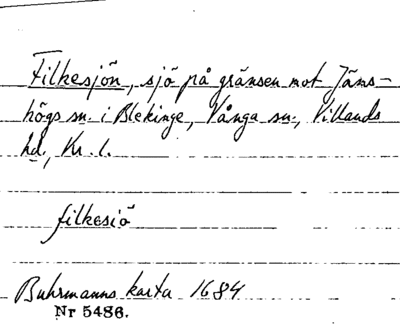 Filkesjön, sjö på gränsen mot Jäms-
högs sn. i Blekinge, Vånga sn., Villands
hd., Kr. l.
filkesiö
Buhrmanns karta 1684
Nr 5486.